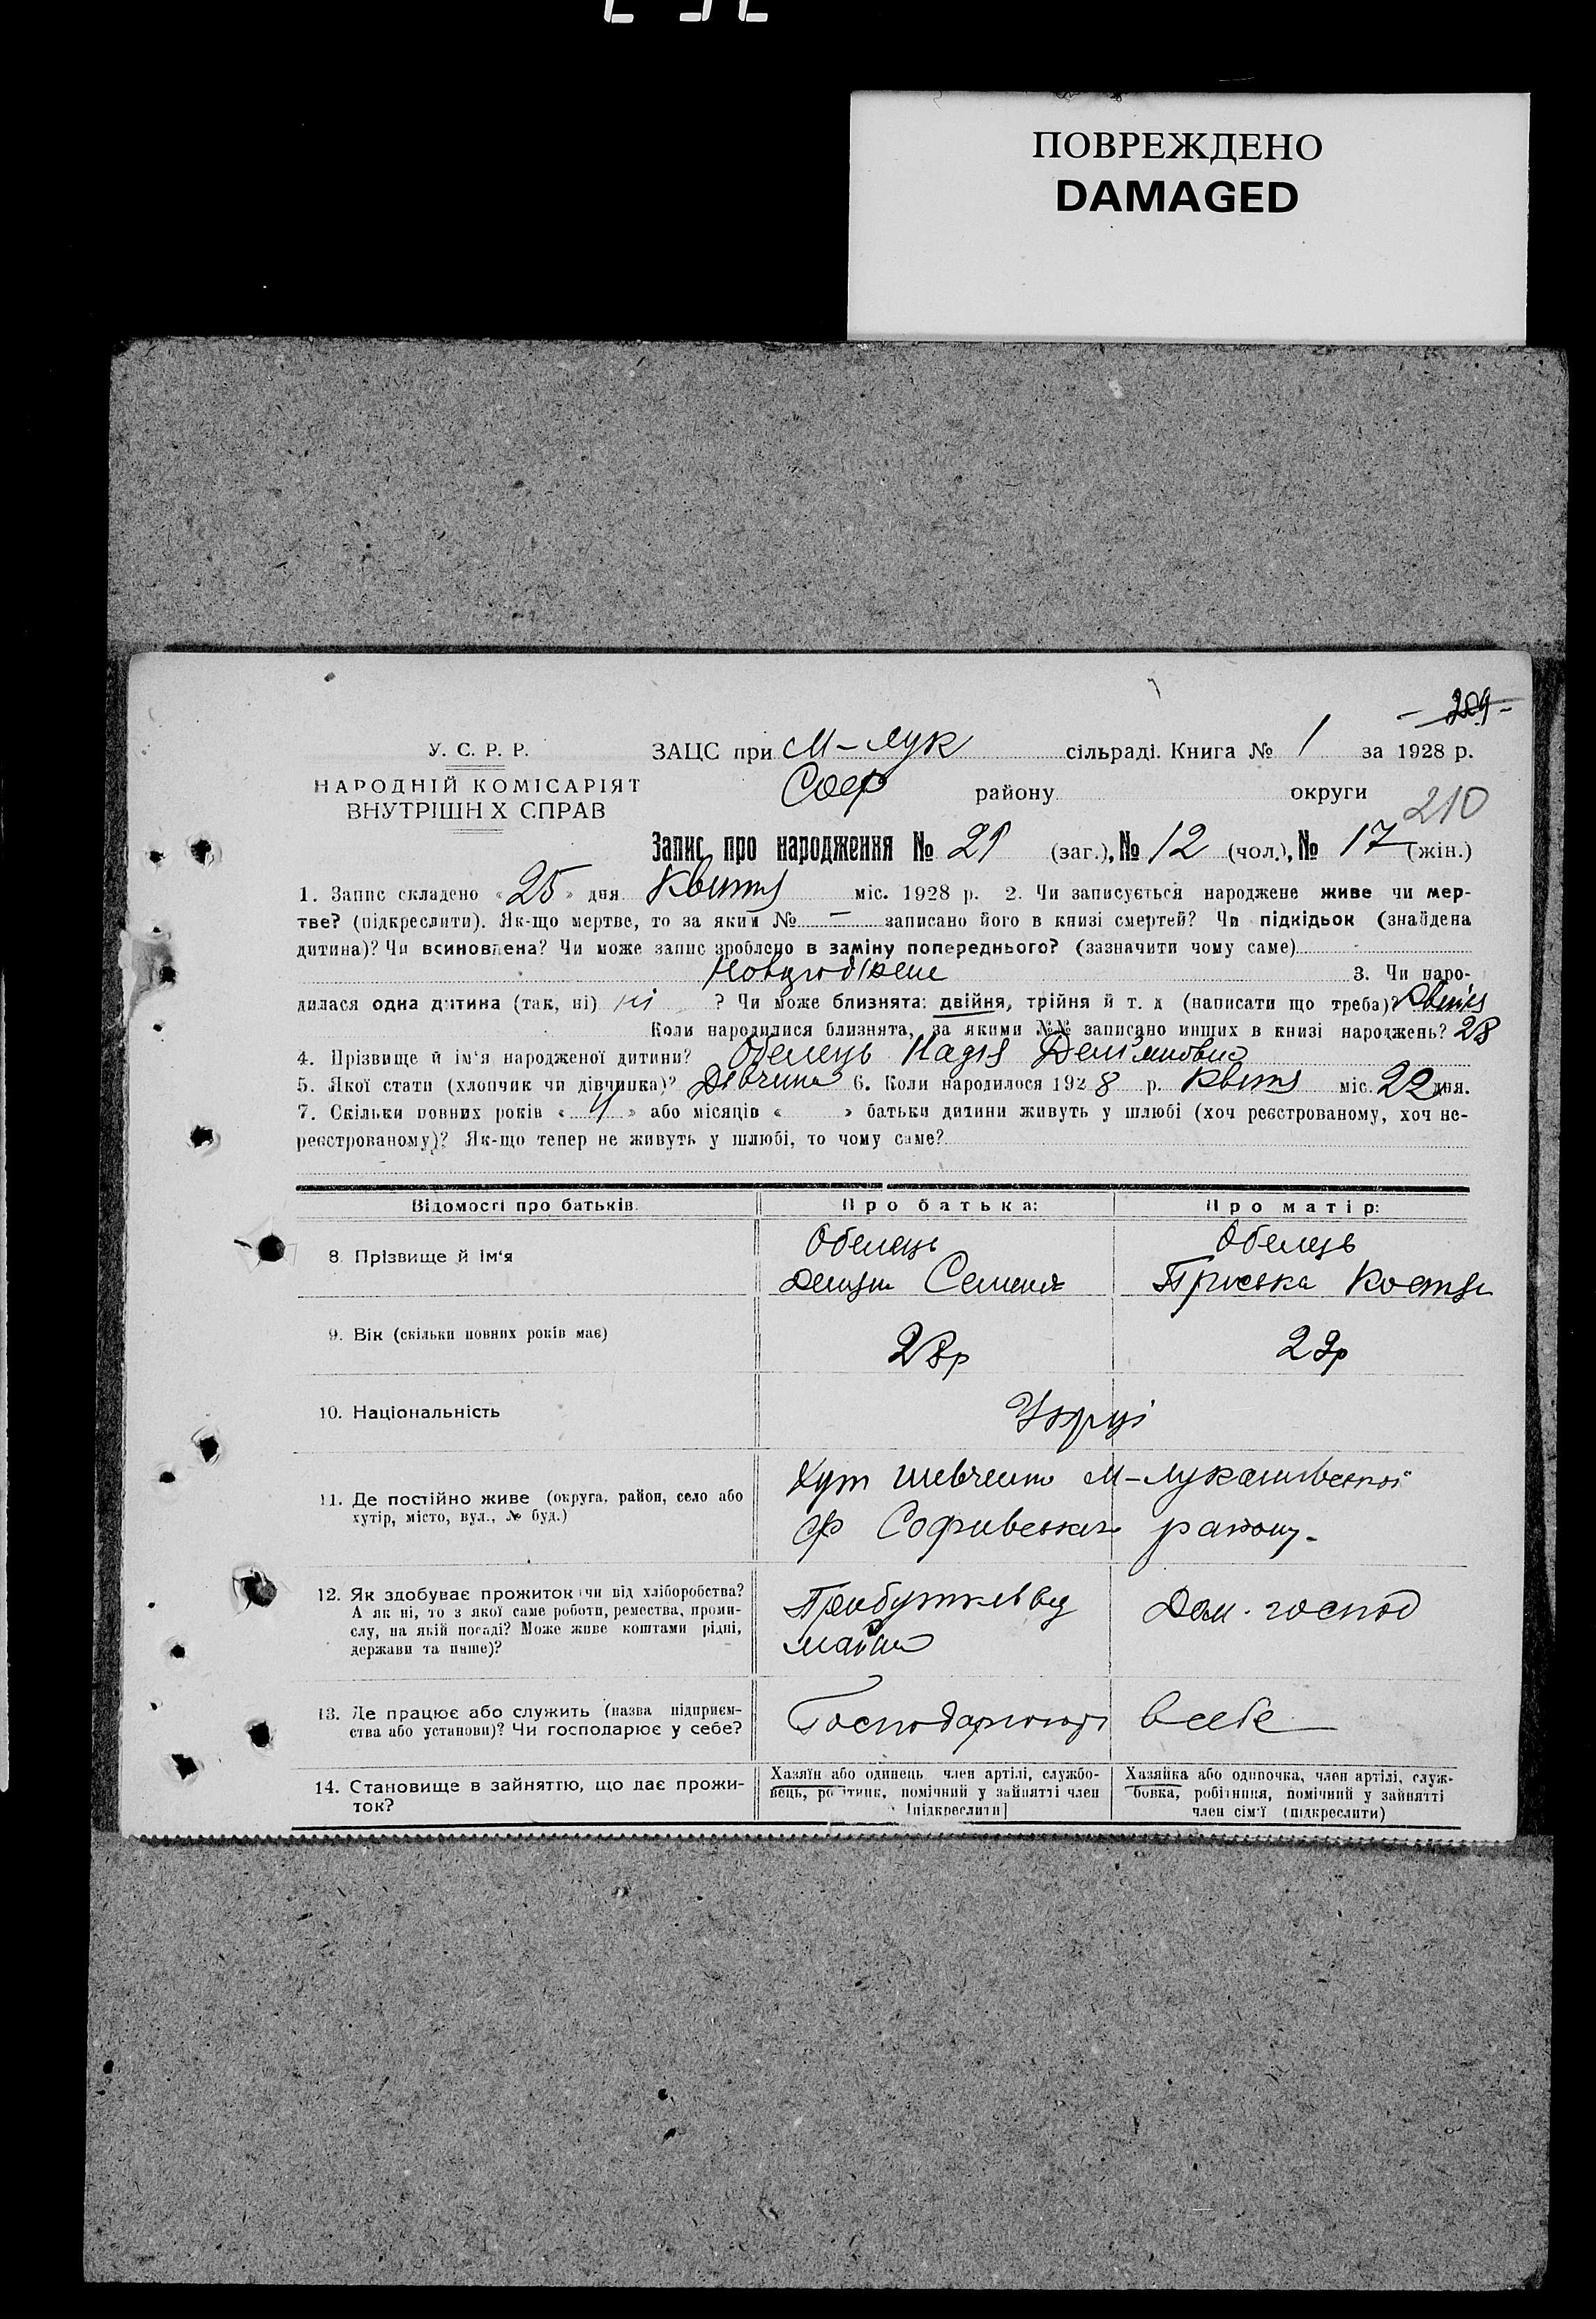 ПОВРЕЖДЕНО
DAMAGED
209
У. С. Р. Р.
НАРОДНІЙ КОМІСАРІЯТ
ВНУТРІШН Х СПРАВ
ЗАЦС при М-Лук сільраді. Книга № 1 за 1928 р.
Соф району округи
210
Запис про народження № 29 (заг.), № 12 (чол.), № 17 (жін.)
1. Запис складено « 25 » дня Квітня міс. 1928 р. 2. Чи записується народжене живе чи мер-
тве? (підкреслити). Як-що мертве, то за яким № — записано його в книзі смертей? Чи підкідьок (знайдена
дитина)? Чи всиновлена? Чи може запис зроблено в заміну попереднього? (зазначити чому саме)
3. Чи наро-
дилася одна дитина (так, ні) ні ? Чи може близнята: двійня, трійня й т. д (написати що треба)? двійня
Коли народилися близнята, за якими №№ записано инших в книзі народжень? 28
4. Прізвище й ім'я народженої дитини? Обелець Надія
5. Якої стати (хлопчик чи дівчинка)? Дівчина 6. Коли народилося 1928 р. Квітня міс. 22 дня.
7. Скільки повних років « 4 » або місяців « » батьки дитини живуть у шлюбі (хоч реєстрованому, хоч не-
реєстрованому)? Як-що тепер не живуть у шлюбі, то чому саме?
Відомості про батьків. Про батька: Про матір:
8 Прізвище й ім'я
Обелець Обелець
Семенов Приська
9. Вік (скільки повних років має) 28р 22р
10. Національність Укрці
11. Де постійно живе (округа, район, село або
хутір, місто, вул., № буд.)
Хут Шевченко М-Лукашівської
с/р Софиевського району.
12. Як здобуває прожиток чи від хліборобства?
А як ні, то з якої саме роботи, ремества, проми-
слу, на якій посаді? Може живе коштами рідні,
держави та инше)?
Прибутків від Дом. господ
майна
13. Де працює або служить (назва підприєм-
ства або установи)? Чи господарює у себе?
Господарюють в себе
14. Становище в зайняттю, що дає прожи-
ток?
Хазяїн або одинець, член артілі, службо-
вець, робітник, помічний у зайнятті член
[підкреслити]
Хазяйка або одиночка, член артілі, служ-
бовка, робітниця, помічний у зайнятті
член сім'ї (підкреслити)